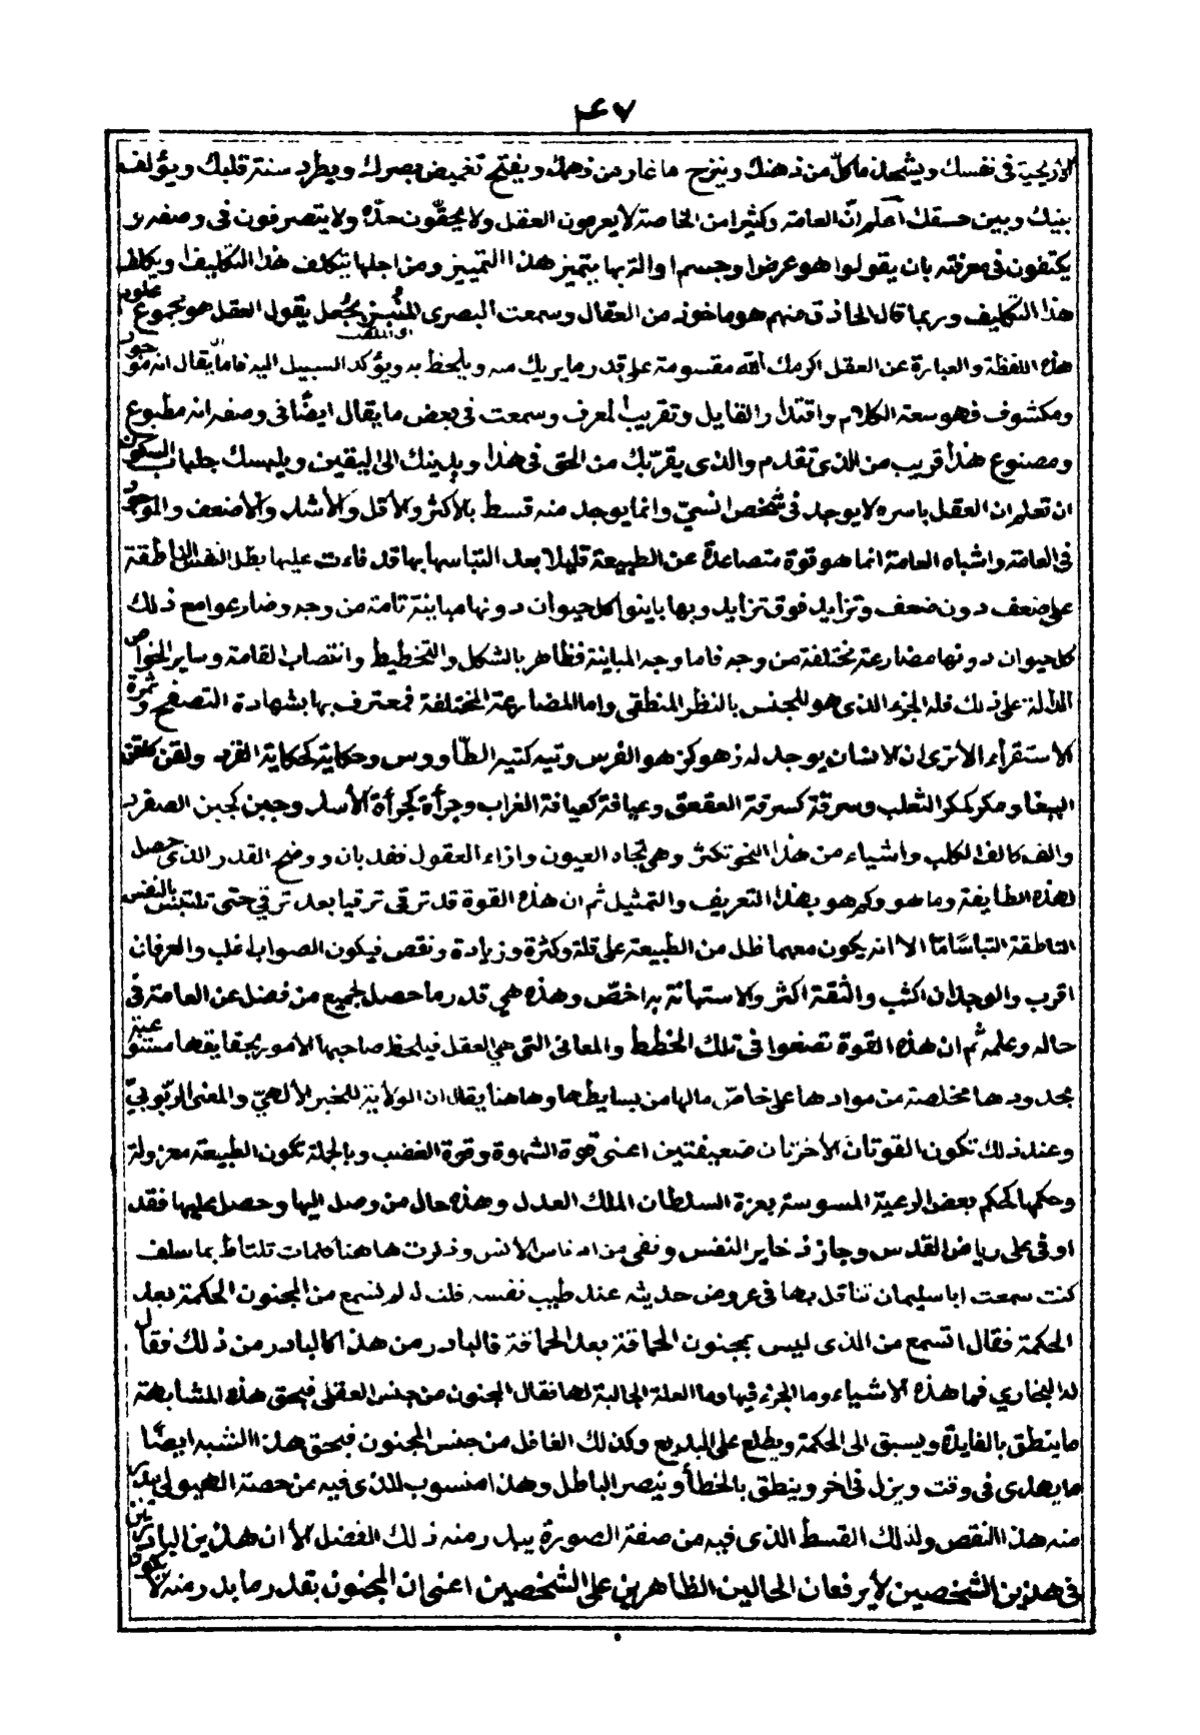 ٤٧
الاريحية فى نفسك ويشحذ ماكلّ من ذهنك وينزح ما غار من فهمك ويفتح تغميض بصرك ويطرد سنة قلبك ويؤلف
بينك وبين حسقك اعلم انّ العامة وكثيرا من الخاصة لا يعرفون العقل ولا يحقّون حدّه ولا يتصرفون فى وصفه و
يكتفون فى معرفته بان يقولوا هو عرض او جسم او التى بها يتميز هذا التمييز ومن اجلها يتكلف هذا التكليف ويكلف
هذا التكليف وربما قال الحاذق منهم هو ماخوذ من العقال وسمعت البصرى الملقب بجُعل يقول العقل هو مجموع علوم
هذه اللفظة والعبارة عن العقل اكرمك الله مقسومة على قدر ما يريك منه ويلحظ به ويؤكد السبيل اليه فاما ما يقال انه موجود
ومكشوف فهو سعة الكلام واقتدار القايل وتقريب لمعرف وسمعت فى بعض ما يقال ايضًا فى وصفه انه مطبوع
ومصنوع هذا قريب من الذى تقدم والذى يقرّبك من الحق فى هذا ويدينك الى اليقين ويلبسك جلباب السكون
ان تعلم ان العقل باسره لا يوجد فى شخص انسىّ وانما يوجد منه قسط بالأكثر والأقل والأشد والأضعف والموجود
فى العامة واشباه العامة انما هو قوة متصاعدة عن الطبيعة قليلا بعد التباسها بها قد فاءت عليها بظل النفس الناطقة
على ضعف دون ضعف وتزايد فوق تزايد وبها باينوا كل حيوان دونها مباينة تامة من وجه وضارعوا مع ذلك
كل حيوان دونها مضارعة مختلفة من وجه فاما وجه المباينة فظاهر بالشكل والتخطيط وانتصاب القامة وساير الخواص
الدالة على ذلك فله الجزء الذى هو للجنس بالنظر المنطقى واما المضارعة المختلفة فمعترف بها بشهادة التصفح وثمرة
الاستقرأء الا ترى ان الانسان يوجد له زهو كزهو الفرس وتيه كتيه الطّاووس وحكاية كحكاية القرد ولقن كلقن
الببغا ومكر كمكر الثعلب وسرقة كسرقة العقعق وعيافة كعيافة الغراب وجرأة كجرأة الأسد وجبن كجبن الصفرد
والف كالف الكلب واشياء من هذا النحو تكثر وهى تجاه العيون وازاء العقول فقد بان ووضح القدر الذى حصل
لهذه الطايفة وما هو وكم هو بهذا التعريف والتمثيل ثم ان هذه القوة قد ترقى ترقيا بعد ترقى حتى تلتبس بالنفس
الناطقة التباسًا تامًا الا انه يكون معهما ظل من الطبيعة على قلة وكثرة وزيادة ونقص فيكون الصواب اغلب والعرفان
اقرب والوجدان اكثب والثقة اكثر والاستهانة به اخصّ وهذه هى قدر ما حصل لجميع من فضل عن العامة فى
حاله وعلمه ثم ان هذه القوة تصغوا فى تلك الخطط والمعانى التى هى العقل فيلحظ صاحبها الامور بحقايقها مستوعبة
بحدودها مخلصة من موادها على خاصّ مالها من بسايطها وهاهنا يقال ان الولاية للخبر الألهىّ والمعنى الربوبىّ
وعند ذلك تكون القوتان الأخرتان ضعيفتين اعنى قوة الشهوة وقوة الغضب وبالجملة تكون الطبيعة معزولة
وحكمها كحكم بعض الرعية المسوسة بعزة السلطان الملك العدل وهذه حال من وصل اليها وحصل عليها فقد
اوفى على رياض القدس وجاز ذخاير النفس ونفى من ادناس الأنس وذكرت هاهنا كلمات تلتاط بما سلف
كنت سمعت ابا سليمان تناقل بها فى عروض حديثه عند طيب نفسه قلت له لم نسمع من المجنون الحكمة بعد
الحكمة فقال اتسمع من الذى ليس بمجنون الحماقة بعد الحماقة فالبادر من هذا كالبادر من ذلك فقال
له البخارى فما هذه الاشياء وما الجزء فيها وما العلة الجالبة لها فقال المجنون من جنس العقل فبحق هذه المشابهة
ما ينطق بالفايدة ويسبق الى الحكمة ويطلع على البديع وكذلك الغافل من جنس المجنون فبحق هذا الشبه ايضًا
ما يهذى فى وقت ويزل فى اخر وينطق بالخطأ وينصر الباطل وهذا منسوب للذى فيه من حصة الهيولى يبدر
منه هذا النقص ولذلك القسط الذى فيه من صفة الصورة يبدر منه ذلك الفضل الا ان هذين البادرين
فى هذين الشخصين لا يرفعان الحالين الظاهرين على الشخصين اعنى ان المجنون بقدر ما بدر منه لا يكون